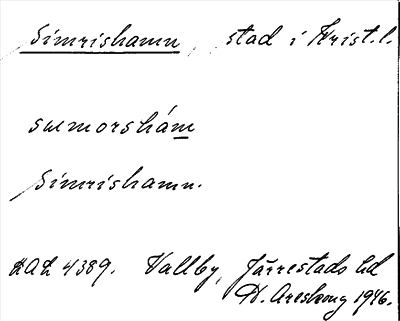 Simrishamn, stad i Krist. l.
summorshám
Simrishamn.
LAL 4389. Vallby, Järrestads hd
W. Areskoug 1946.